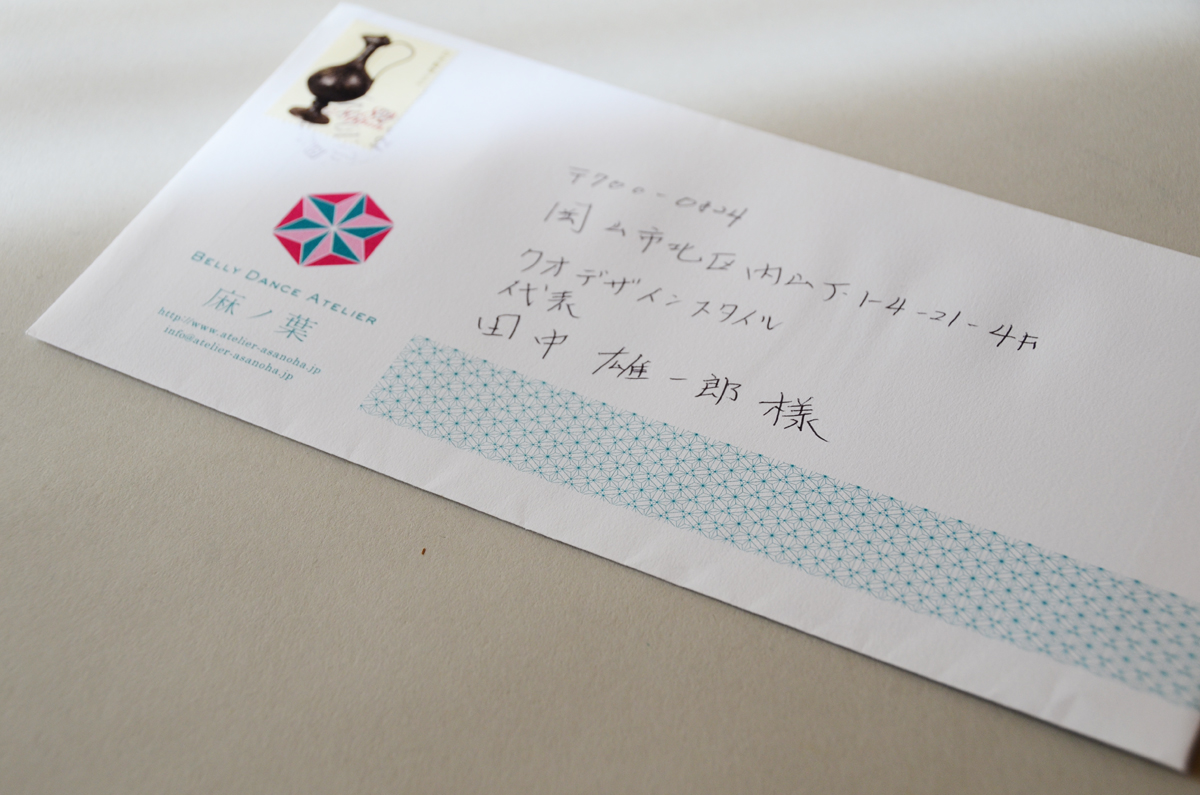 BELLY DANCE ATELIER
麻ノ葉
http://www.atelier-asanoha.jp
info@atelier-asanoha.jp
〒700-0824
岡山市北区内山下1-4-21-4F
クオデザインスタイル
代表
田中 雄一郎 様